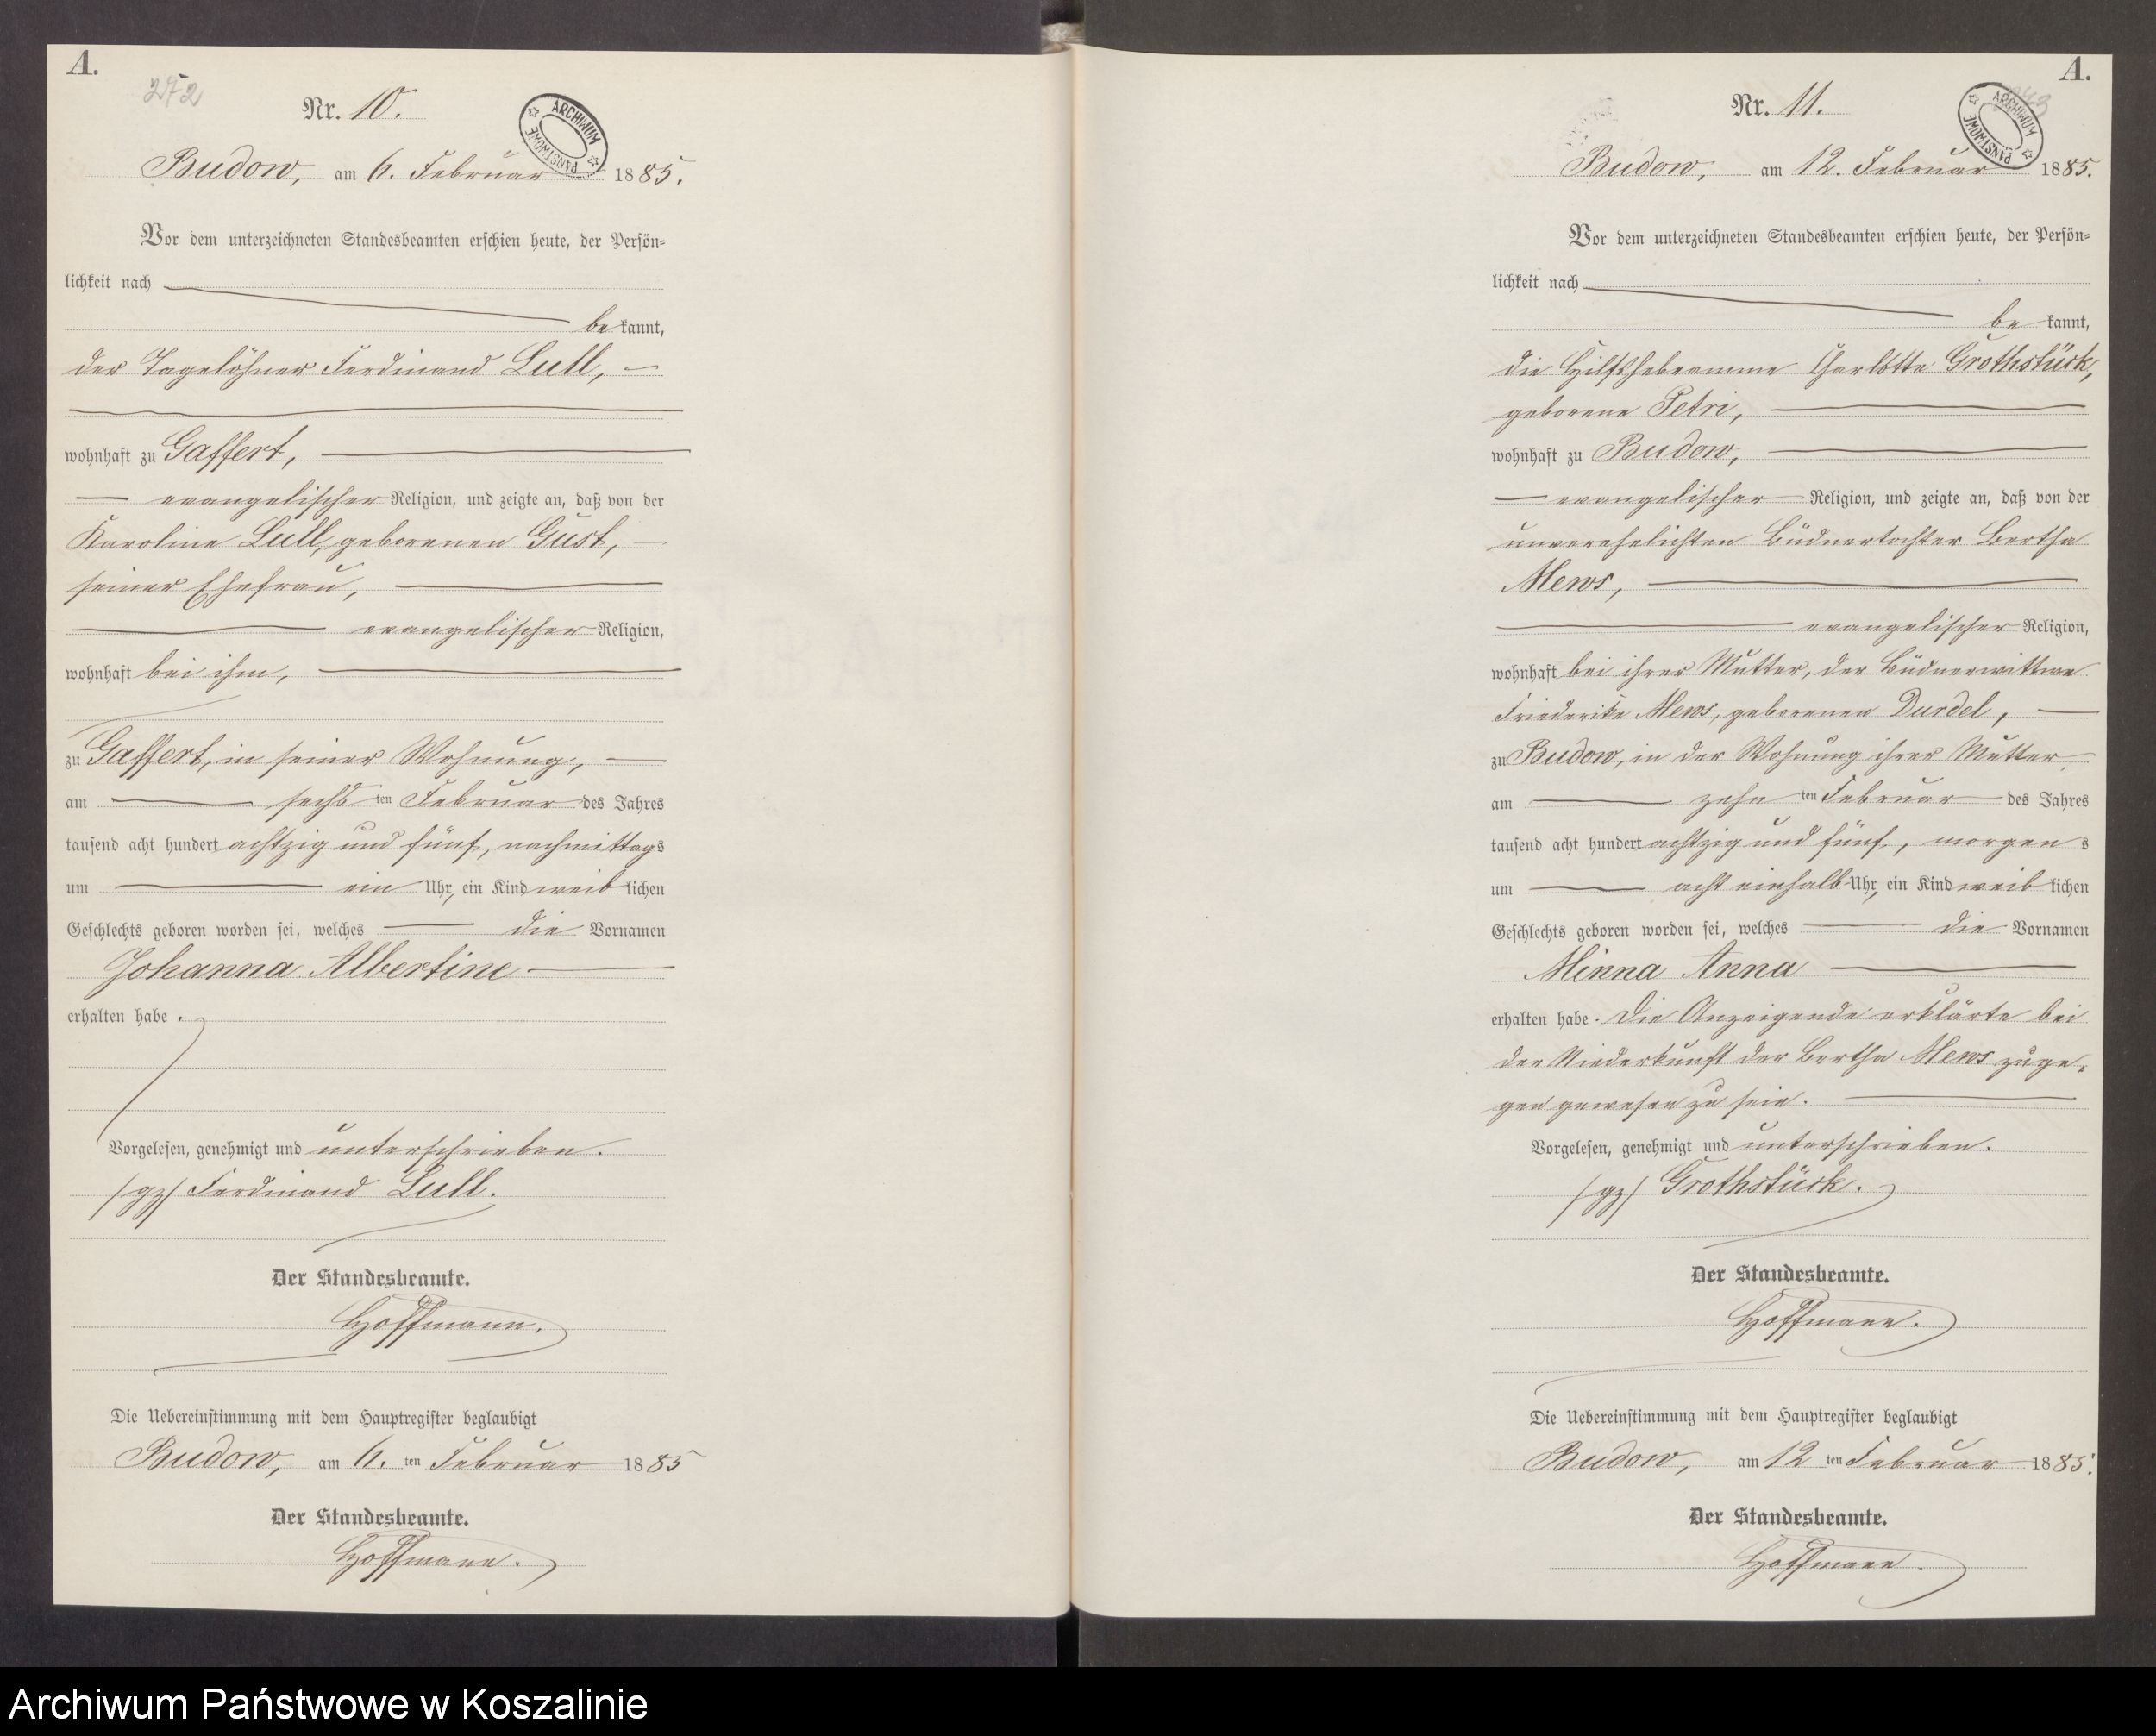 A.
272
Nr. 10.
ARCHIWUM PAŃSTWOWE
Budow, am 6. Februar 1885.
Vor dem unterzeichneten Standesbeamten erschien heute, der Persön-
lichkeit nach
bekannt,
der Tagelöhner Ferdinand Lull,
wohnhaft zu Gaffert,
evangelischer Religion, und zeigte an, daß von der
Karoline Lull, geborenen Gust,
seiner Ehefrau,
evangelischer Religion,
wohnhaft bei ihm,
zu Gaffert, in seiner Wohnung,
am sechsten Februar des Jahres
tausend acht hundert achtzig und fünf, nachmittags
um ein Uhr, ein Kind weiblichen
Geschlechts geboren worden sei, welches die Vornamen
Johanna Albertine
erhalten habe.
Vorgelesen, genehmigt und unterschrieben.
/gz/ Ferdinand Lull.
Der Standesbeamte.
Hoffmann.
Die Uebereinstimmung mit dem Hauptregister beglaubigt
Budow, am 6. ten Februar 1885
Der Standesbeamte.
Hoffmann.
A.
Nr. 11.
ARCHIWUM PAŃSTWOWE
Budow, am 12. Februar 1885.
Vor dem unterzeichneten Standesbeamten erschien heute, der Persön-
lichkeit nach
bekannt,
die Hilfshebeamme Charlotte Grothstück,
geborene Petri,
wohnhaft zu Budow,
evangelischer Religion, und zeigte an, daß von der
unverehelichten Büdnertochter Bertha
Mews,
evangelischer Religion,
wohnhaft bei ihrer Mutter, der Büdnerwittwe
Friederike Mews, geborenen Durdel,
zu Budow, in der Wohnung ihrer Mutter,
am zehnten Februar des Jahres
tausend acht hundert achtzig und fünf, morgens
um acht einhalb Uhr, ein Kind weiblichen
Geschlechts geboren worden sei, welches die Vornamen
Minna Anna
erhalten habe. Die Anzeigende erklärte bei
der Niederkunft der Bertha Mews zuge-
gen gewesen zu sein.
Vorgelesen, genehmigt und unterschrieben.
/gz/ Grothstück.
Der Standesbeamte.
Hoffmann.
Die Uebereinstimmung mit dem Hauptregister beglaubigt
Budow, am 12 ten Februar 1885.
Der Standesbeamte.
Hoffmann.
Archiwum Państwowe w Koszalinie